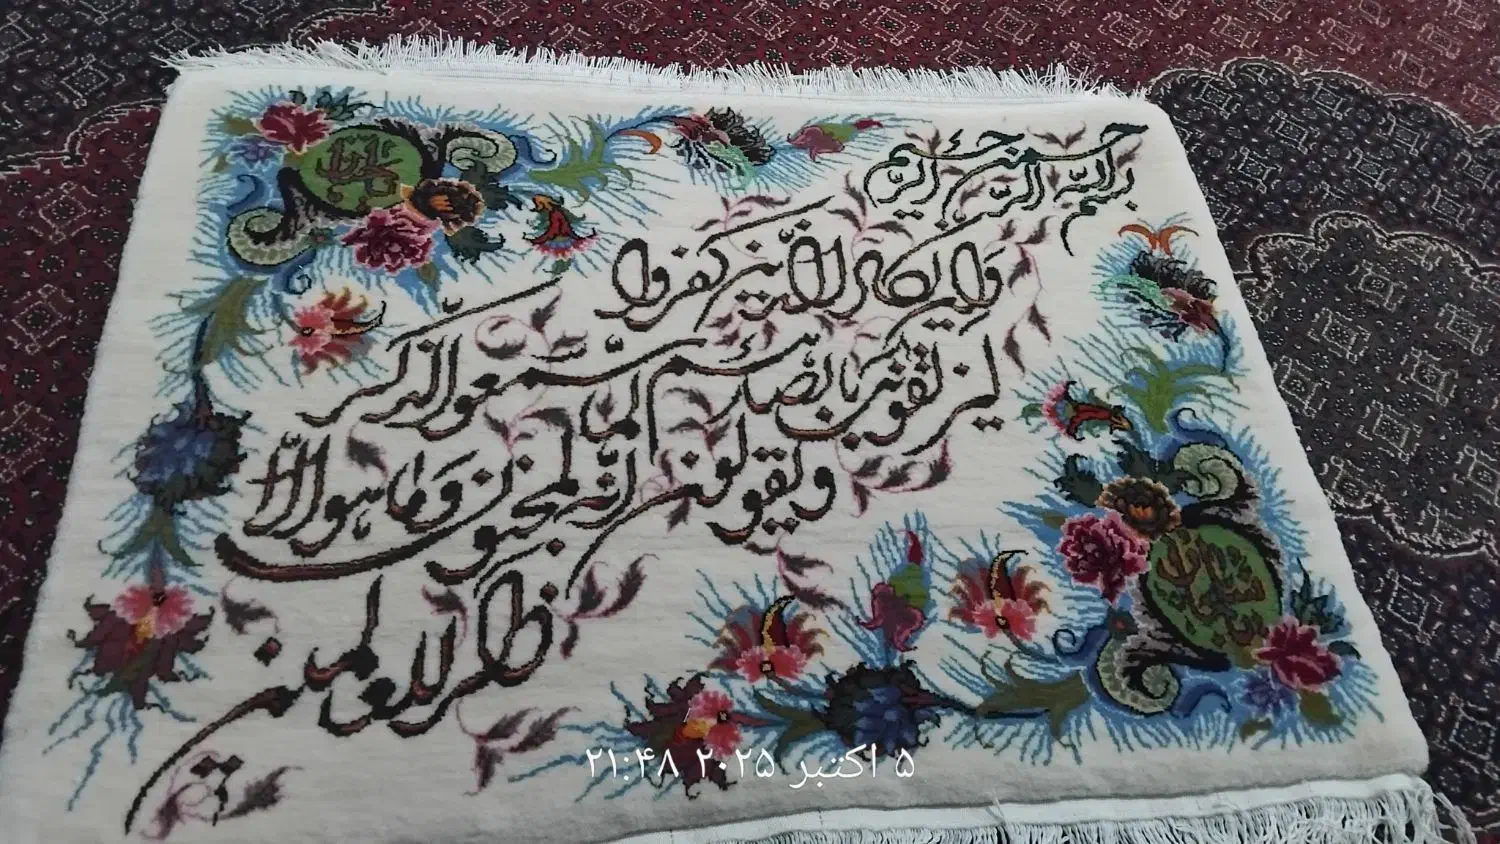 بسم الله الرحمن الرحیم
وان یکاد الذین کفروا
لیزلقونک بابصارهم لما سمعوا الذکر
ویقولون انه لمجنون وما هو الا
ذکر للعالمین
۵ اکتبر ۲۰۲۵ ۲۱:۴۸